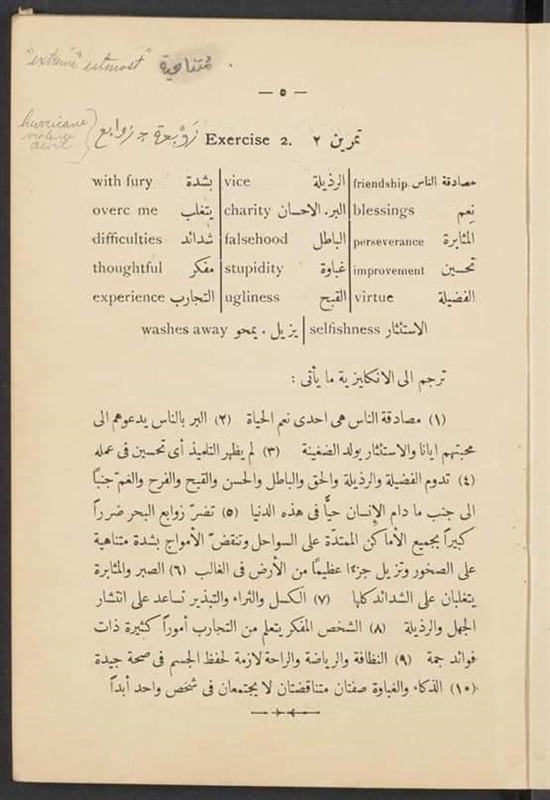 "extreme" utmost" مُتناهية
— ٥ —
hurricane
violence
devil
زَوْبعة ج زوابع
Exercise 2. تمرين ٢
with fury بشدة vice الرذيلة friendship مصادقة الناس
overc me يتغلب charity البر. الاحسان blessings نِعم
difficulties شدائد falsehood الباطل perseverance المثابرة
thoughtful مفكر stupidity غباوة improvement تحسين
experience التجارب ugliness القبح virtue الفضيلة
washes away يزيل . يمحو selfishness الاستئثار
ترجم الى الانكليزية ما يأتى :
(١) مصادقة الناس هى احدى نعم الحياة (٢) البر بالناس يدعوهم الى
محبتهم ايانا والاستئثار يولد الضغينة (٣) لم يظهر التلميذ أى تحسين فى عمله
(٤) تدوم الفضيلة والرذيلة والحق والباطل والحسن والقبح والفرح والغمّ جنباً
الى جنب ما دام الإنسان حيًّا فى هذه الدنيا (٥) تضرّ زوابع البحر ضرراً
كبيراً بجميع الأماكن الممتدّة على السواحل وتنقضّ الأمواج بشدة متناهية
على الصخور وتزيل جزءا عظيمًا من الأرض فى الغالب (٦) الصبر والمثابرة
يتغلبان على الشدائد كلها (٧) الكسل والثراء والتبذير تساعد على انتشار
الجهل والرذيلة (٨) الشخص المفكر يتعلم من التجارب أموراً كثيرة ذات
فوائد جمة (٩) النظافة والرياضة والراحة لازمة لحفظ الجسم فى صحة جيدة
(١٠) الذكاء والغباوة صفتان متناقضتان لا يجتمعان فى شخص واحد أبداً